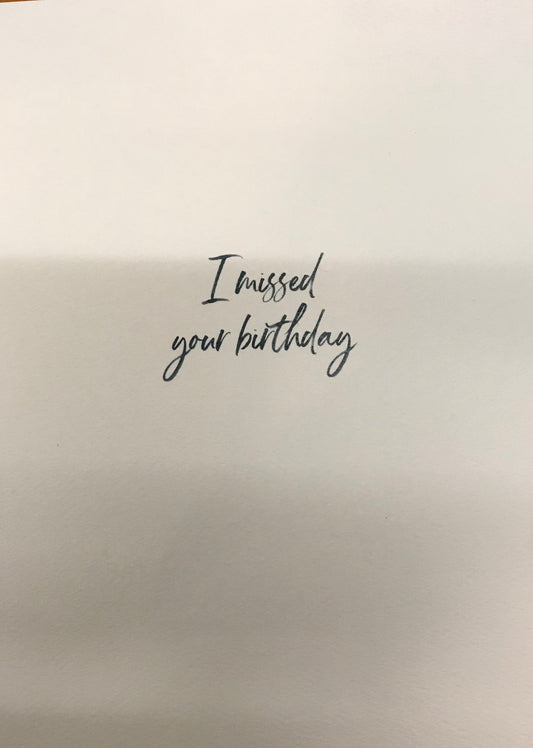 I missed
your birthday